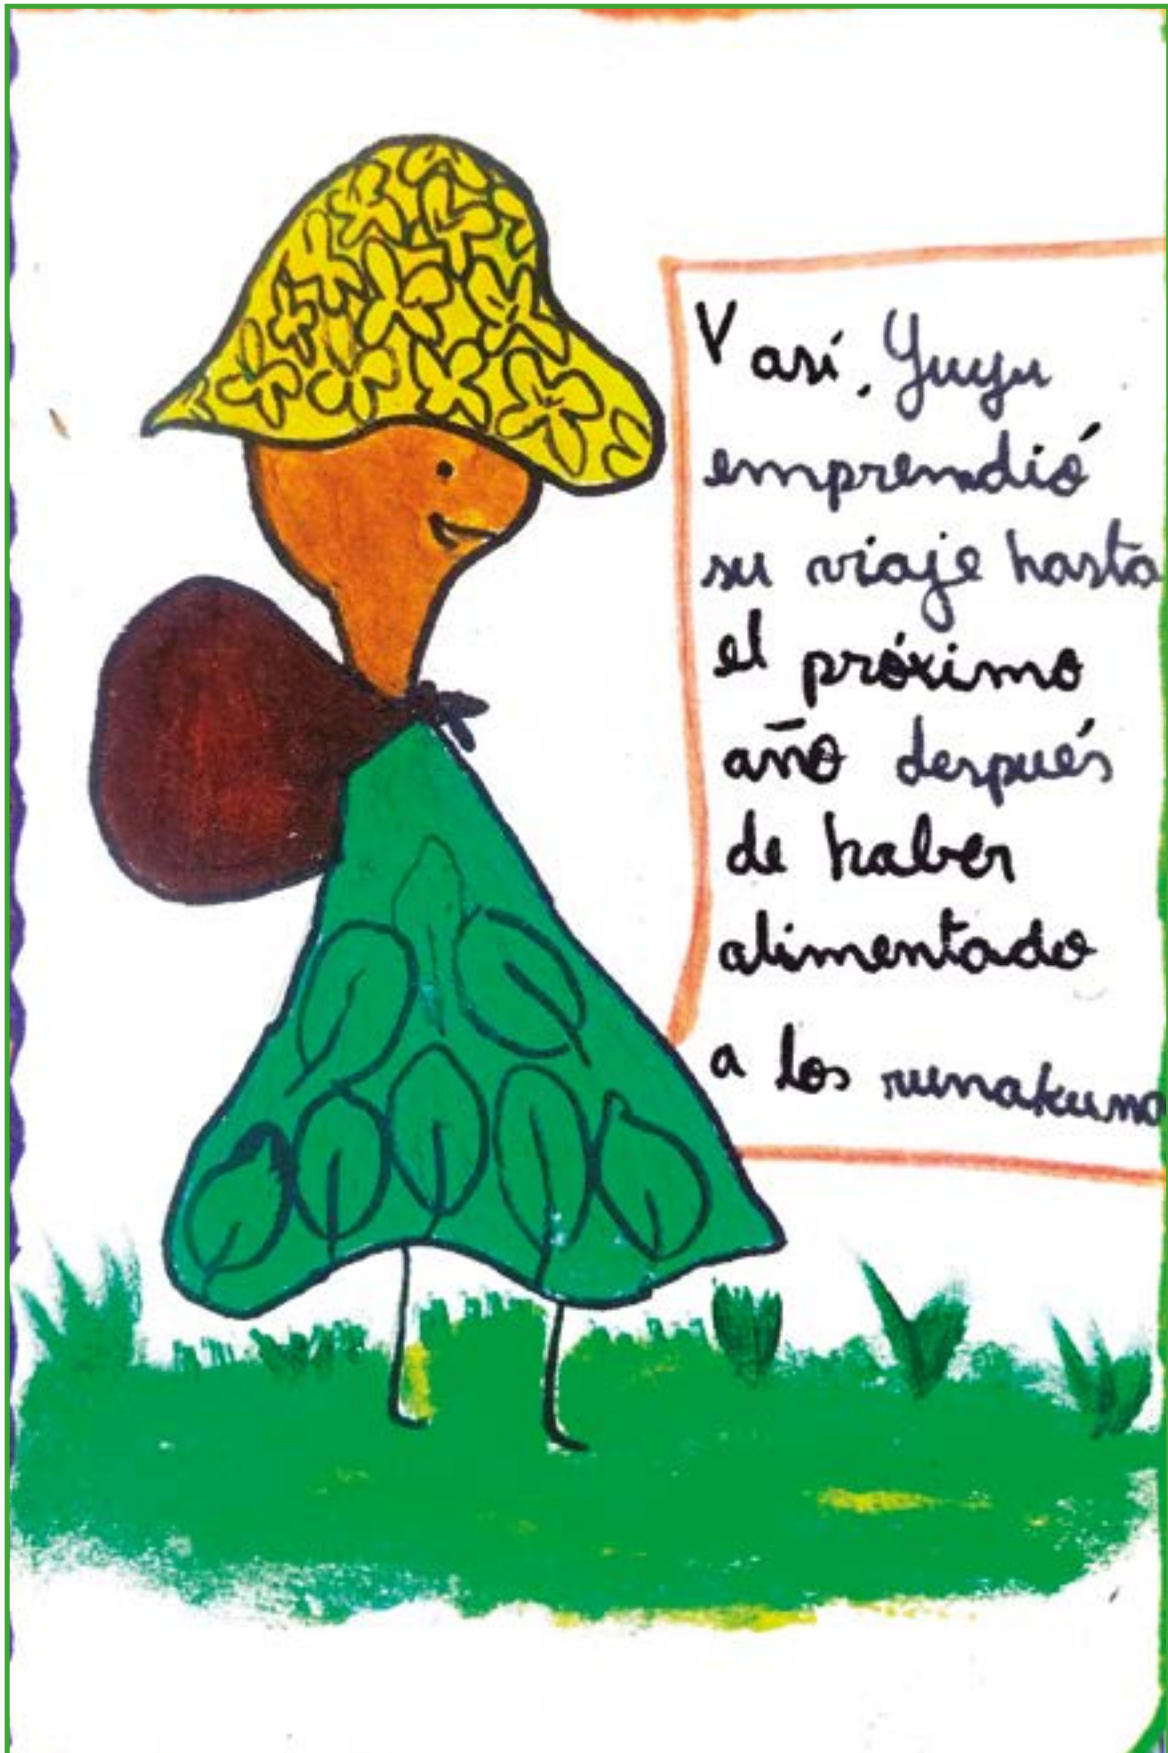 Y así, Yuyu
emprendió
su viaje hasta
el próximo
año después
de haber
alimentado
a los runakuna